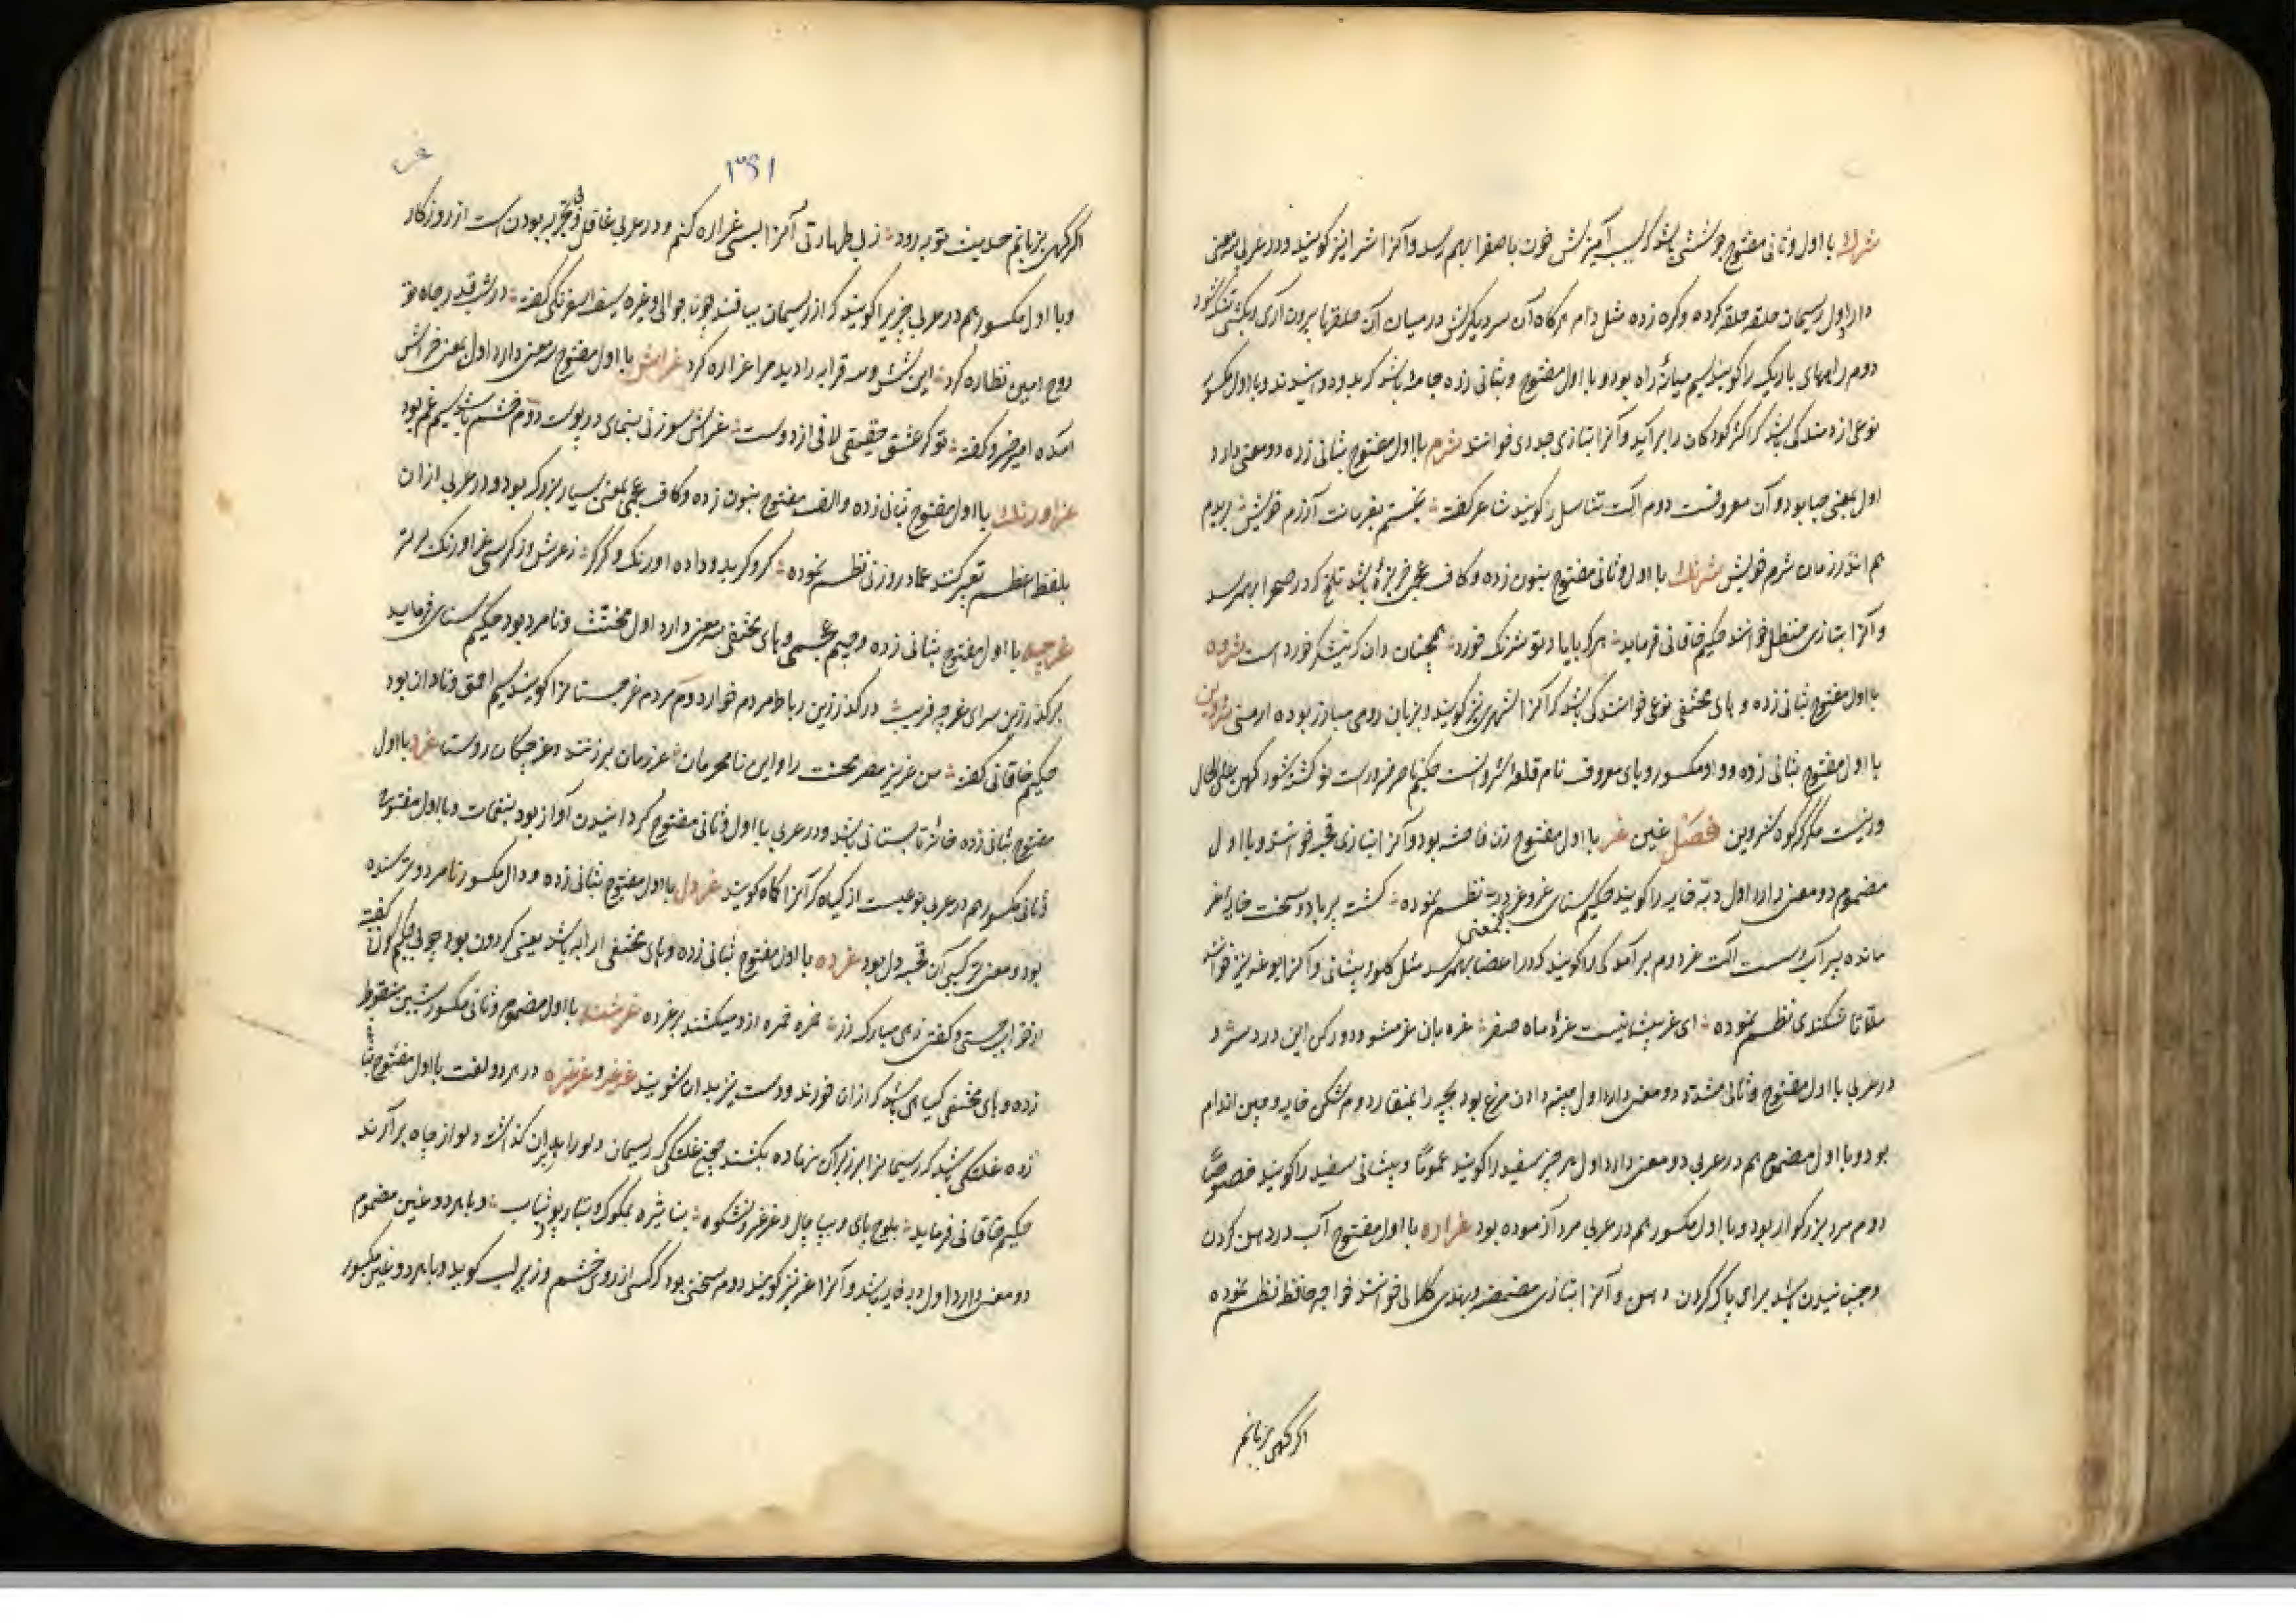 شرك با اول و ثانی مفتوح جوششی باشد که بسبب آمیزش خون با صفرا بهم رسد و آنرا شرا نیز کویند و در عربی دو معنی
دارد اول ریسمان حلقه حلقه کرده و کره زده مثل دام هرکاه آن سر دیکرش در میان آن حلقها بیرون آری و بکشی تنک شود
دوم راههای باریک را کویند سیم میانهٔ راه بود و با اول مفتوح و بثانی زده جامه باشد کربد و دوانیدند و با اول مکسور
نوعی از دمیدکی باشد که اکثر کودکان را برآید و آنرا بتازی جدری خوانند شرم با اول مفتوح بثانی زده دو معنی دارد
اول بمعنی حیا بود و آن معروفست دوم آلت تناسل را کویند شاعر کفته بخستم بفرمانت آزرم خویش بریدم
هم اندر زمان شرم خویش شرنك با اول و ثانی مفتوح بنون زده و کاف عجمی خربزهٔ باشد تلخ که در صحرا بهم رسد
و آنرا بتازی حنظل خوانند حکیم خاقانی فرماید هرکه با یاد تو شرنک خورد همچنان دان که نیشکر خورد است شروه
با اول مفتوح بثانی زده و های مختفی نوعی خوانندکی باشد که آنرا شهری نیز کویند و بزبان رومی مبارز بوده ارمنی شروین
با اول مفتوح بثانی زده و واو مکسور و یای معروف نام قلعه شروانست حکیم ناصر خسرو راست نو کشته شود کهن بعلی حال
ور نیست مکر که کوه شروین فصل غین غر با اول مفتوح زن فاحشه بود و آنرا بتازی قحبه خوانند و با اول
مضموم دو معنی دارد اول دبه خایه را کویند حکیم سنای غر و غرد بدین معنی نظم نموده کشت پر باد و سخت خایه غر
مانده بیرآب و سست آلت غر دوم برآمدکی را کویند که در اعضا بهم رسد مثل کلو و پیشانی و آنرا بوغه نیز خوانند
ملقانا شکندی نظم نموده ای غر پیشانیت غرهٔ ماه صفر غره بان غر مشو و دور کن این درد سر
در عربی با اول مفتوح و ثانی مشدد دو معنی دارد اول چینه دادن مرغ بود بچه را بمنقار دوم شکن خایه و چین اندام
بود و با اول مضموم هم در عربی دو معنی دارد اول هر چیز سفید را کویند عموماً و پیشانی سفید را کویند خصوصاً
دوم مرد بزرکوار بود و با اول مکسور هم در عربی مرد آزموده بود غراره با اول مفتوح آب در دهن کردن
و جنبانیدن باشد برای پاک کردن دهن و آنرا بتازی مضمضه و بهندی کلالی خوانند خواجه حافظ نظم نموده
اکر کهی بزبانم
۳۶۱
غر
اکر کهی بزبانم حدیث توبه رود ز بی طهارتی آنرا بسی غراره کنم و در عربی غافل و بی تجربه بودن است از روزکار
و با اول مکسور هم در عربی چیزیرا کویند که از ریسمان ببافند چون جوالی و غیره سیف اسفرنکی کفته در شب قدر جاه خود
روح امین نظاره کرد این شش و سه قرابه را دید مرا غراره کرد غراش با اول مفتوح سه معنی دارد اول بمعنی خراش
آمده امیر خسرو کفته تو کر عشق حقیقی لافی از دوست غراش سوزنی بنمای در پوست دوم خشم باشد سیم غم بود
غراورنك با اول مفتوح بثانی زده و الف مفتوح بنون زده و کاف عجمی بمعنی بسیار بزرک بود و در عربی از ان
بلفظ اعظم تعبیر کنند عماد روزنی نظم نموده کروکرید و داده اورنک و کرکر ز عرش و ز کرسی غراورنک برتر
غرچه با اول مفتوح بثانی زده و جیم عجمی و های مختفی سه معنی دارد اول مخنث و نامرد بود حکیم سنای فرماید
برکذر زین سرای غرچه فریب در کذر زین رباط مردم خوار دوم مردم غرجستانرا کویند سیم احمق و نادان بود
حکیم خاقانی کفته من عزیز مصر محنت را و این نامحرمان غر زنان برزنند و غرچکان روستا غرد با اول
مفتوح بثانی زده خانهٔ تابستانی باشد و در عربی با اول و ثانی مفتوح کردانیدن آواز بود بنغمات و با اول مفتوح
و ثانی مکسور هم در عربی نوعیست از کیاه که آنرا کاه کویند غردل با اول مفتوح بثانی زده و دال مکسور نامرد و ترسنده
بود و معنی ترکیبی آن قحبه دل بود غرده با اول مفتوح بثانی زده و های مختفی ارابه باشد یعنی کردون بود چوبی حکیم کوکن کفت
از خراجستی و کفتی زهی مبارک زر خمره خمره از و میکشند بر غرده غرشنه با اول مضموم و ثانی مکسور بشین منقوط
زده و های مختفی کیاهی باشد که از ان خورند و دست نیز بدان شویند غرغر و غرغره در هر دو لغت با اول مفتوح بثانی
زده غلتکی باشد که ریسمانرا بر زبر آن نهاده بکشند همچو غلتکی که ریسمان دلو را بدان کذاشته دلو از چاه برآرند
حکیم خاقانی فرماید بلوح پای و بپا چال و غرغر و بشکوه بنا شره بمکوک و بتار پود ثیاب و با هر دو غین مضموم
دو معنی دارد اول دبه خایه باشد و آنرا غر نیز کویند دوم سخنی بود که کسی از روی خشم و زیر لب کوید و با هر دو غین مکسور